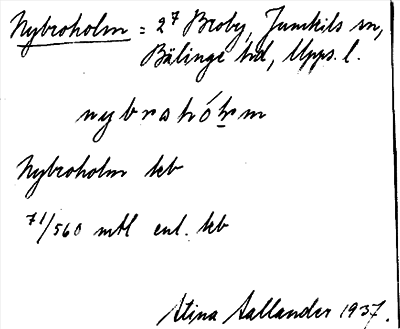 Nybroholm = 2⁷ Broby, Jumkils sn,
Bälinge hd, Upps. l.
Nybroholm kb
71/560 mtl enl. kb
Stina Sallander 1937.